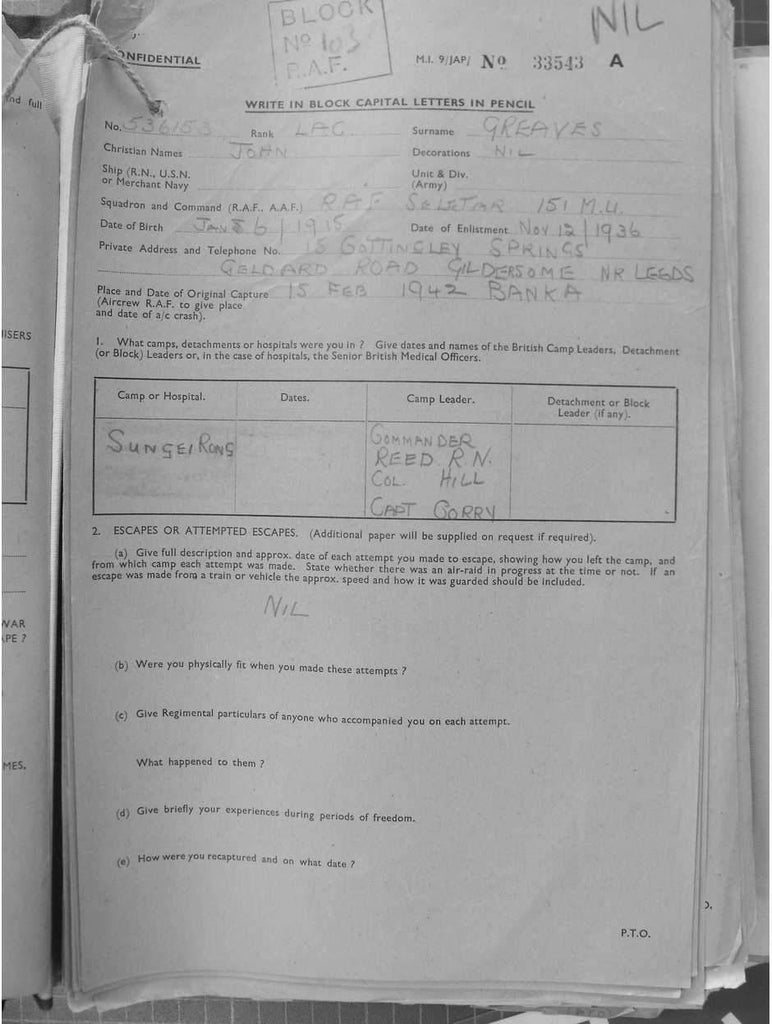 BLOCK
Nº 103
R.A.F.
NIL
CONFIDENTIAL
M.I. 9/JAP/ Nº 33543 A
and full
WRITE IN BLOCK CAPITAL LETTERS IN PENCIL
No. 536153 Rank LAC. Surname GREAVES
Christian Names JOHN Decorations NIL
Ship (R.N., U.S.N. or Merchant Navy Unit & Div. (Army)
Squadron and Command (R.A.F., A.A.F.) RAF SELETAR 151 M.U.
Date of Birth JAN 6 / 1915 Date of Enlistment NOV 12 / 1936
Private Address and Telephone No. 15 COTTINGLEY SPRINGS
GELDARD ROAD GILDERSOME NR LEEDS
Place and Date of Original Capture 15 FEB 1942 BANKA
(Aircrew R.A.F. to give place
and date of a/c crash).
ISERS
1. What camps, detachments or hospitals were you in ? Give dates and names of the British Camp Leaders, Detachment
(or Block) Leaders or, in the case of hospitals, the Senior British Medical Officers.
Camp or Hospital. Dates. Camp Leader. Detachment or Block
Leader (if any).
SUNGEI RONG COMMANDER
REED R.N.
COL. HILL
CAPT CORRY
2. ESCAPES OR ATTEMPTED ESCAPES. (Additional paper will be supplied on request if required).
(a) Give full description and approx. date of each attempt you made to escape, showing how you left the camp, and
from which camp each attempt was made. State whether there was an air-raid in progress at the time or not. If an
escape was made from a train or vehicle the approx. speed and how it was guarded should be included.
NIL
WAR
APE ?
(b) Were you physically fit when you made these attempts ?
(c) Give Regimental particulars of anyone who accompanied you on each attempt.
What happened to them ?
MES.
(d) Give briefly your experiences during periods of freedom.
(e) How were you recaptured and on what date ?
P.T.O.